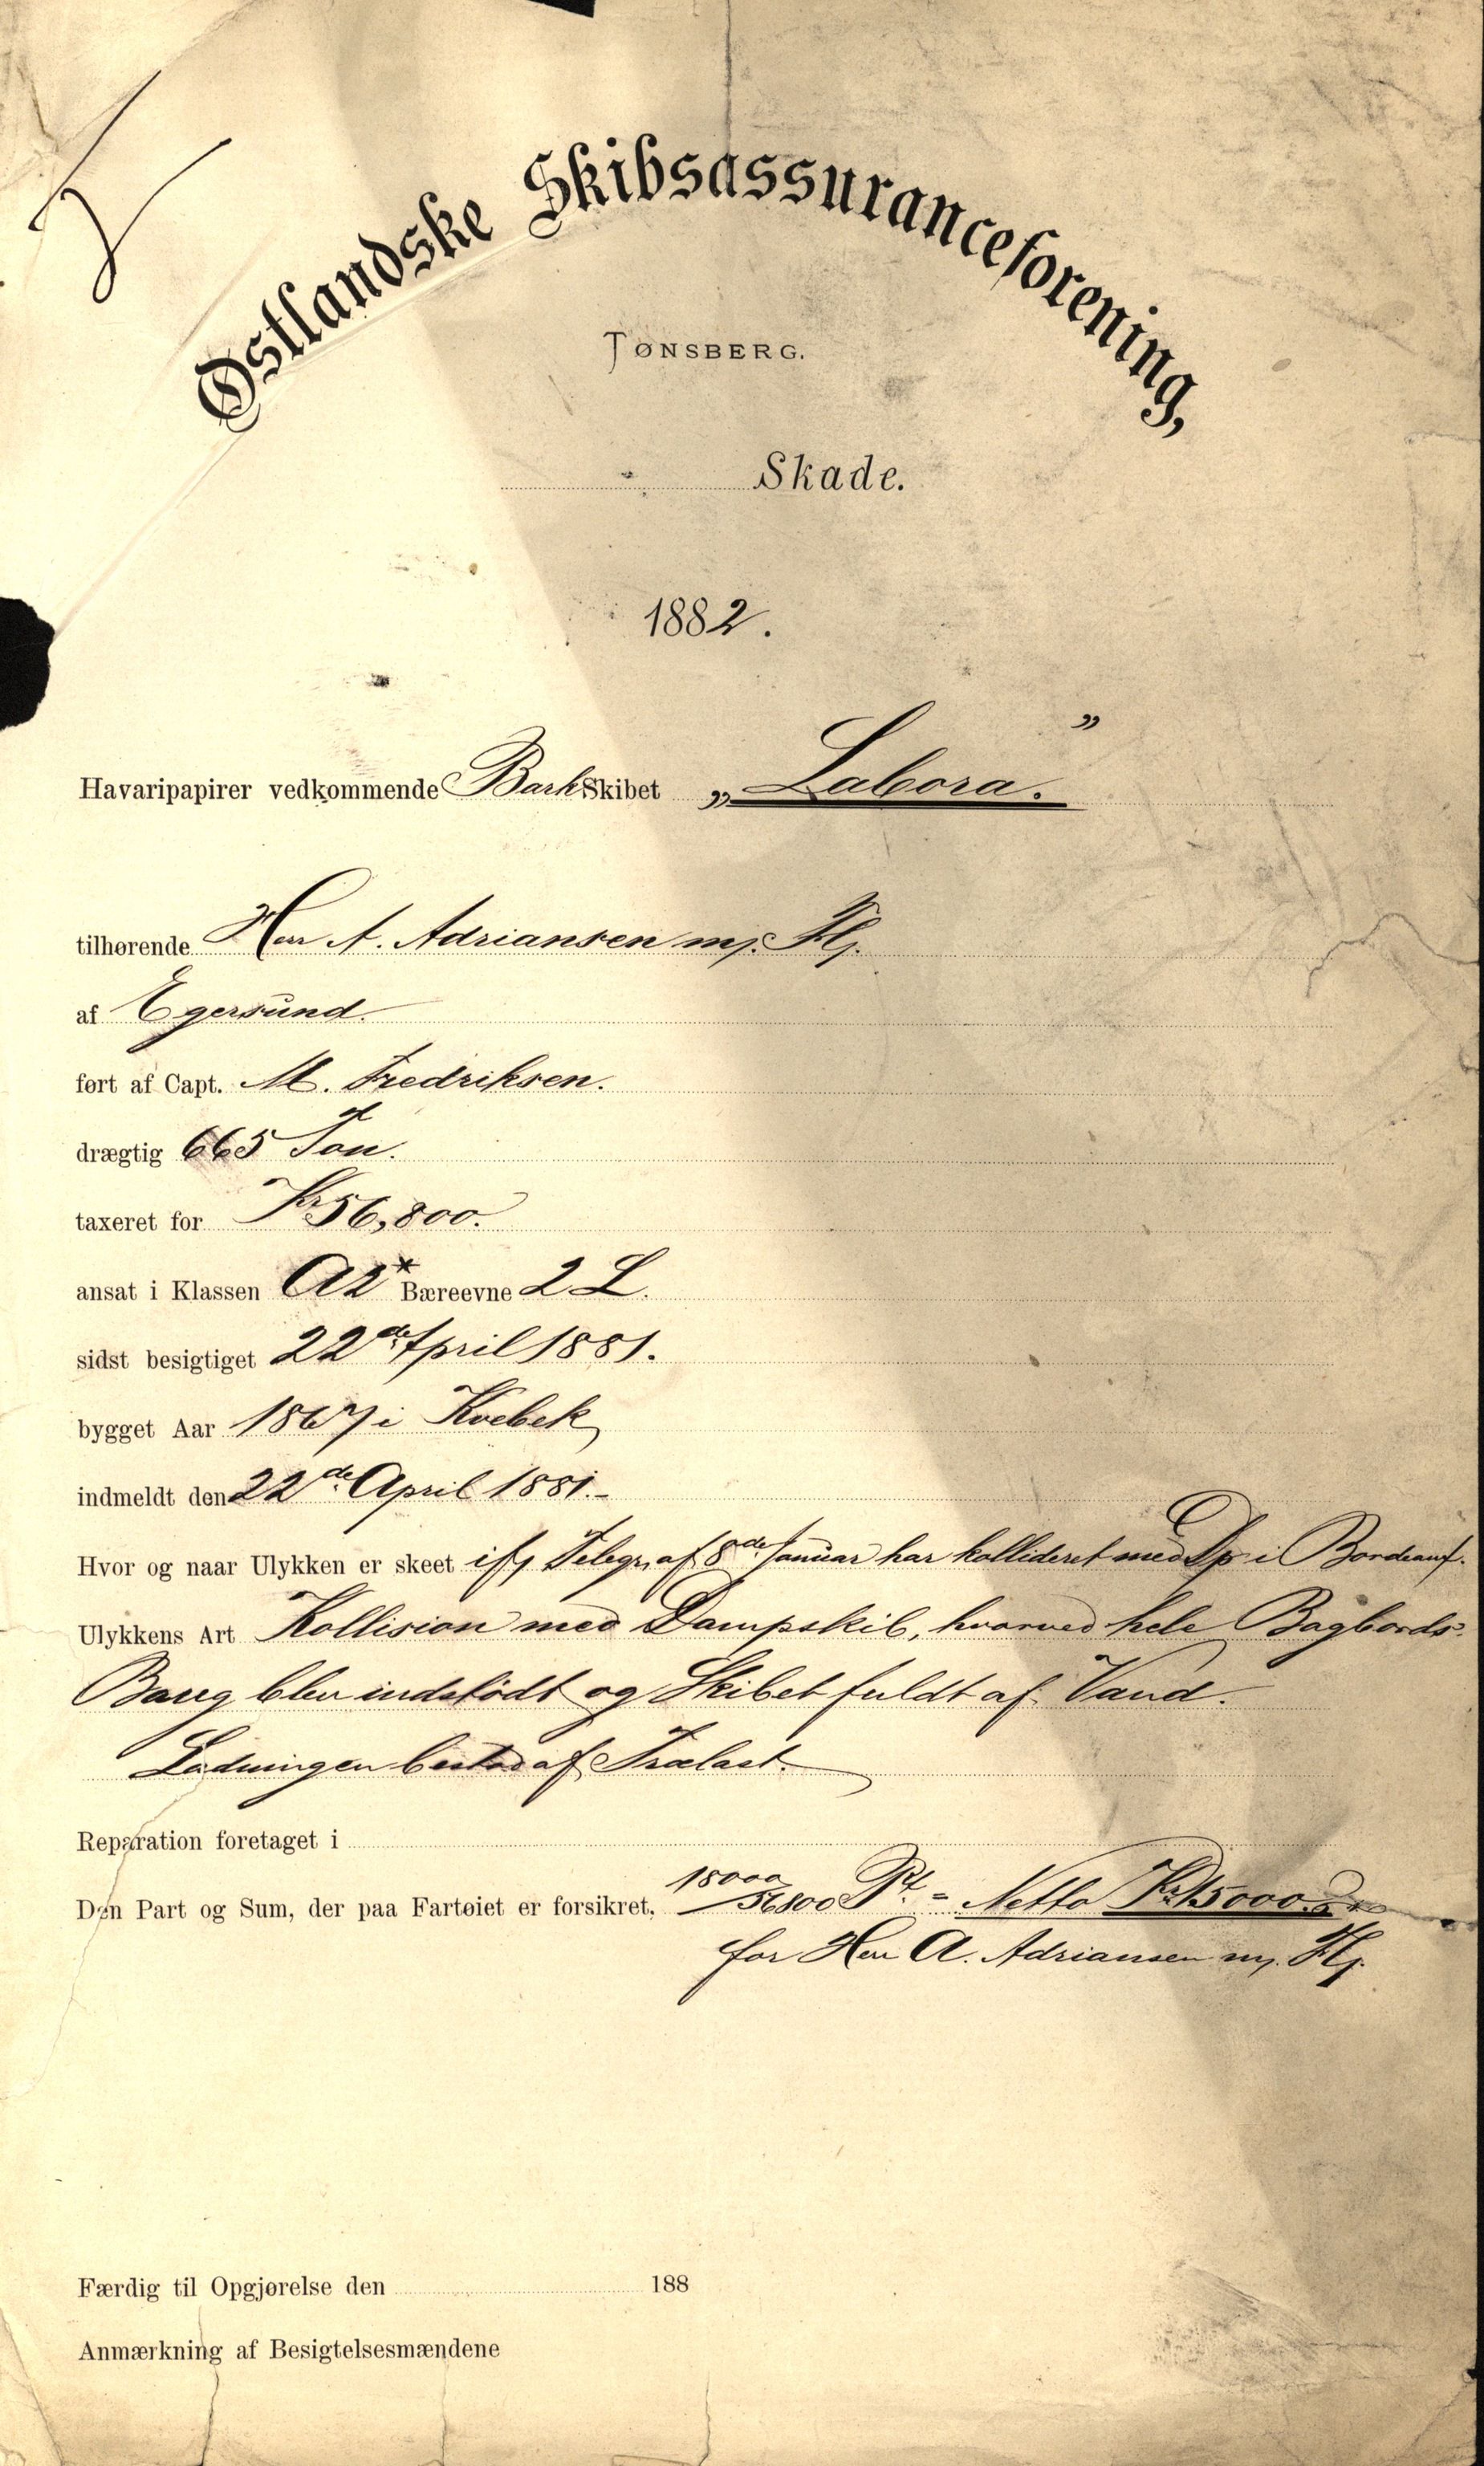 Østlandske Skibsassuranceforening,
TØNSBERG.
Skade.
1882.
Havaripapirer vedkommende Bark Skibet „Labora.”
tilhørende Herr A. Adriansen m/. Fl/.
af Egersund.
ført af Capt. M. Fredriksen.
drægtig 665 Ton.
taxeret for Kr 56,800.
ansat i Klassen A2* Bæreevne 2 L.
sidst besigtiget 22de April 1881.
bygget Aar 1867 i Kvebek
indmeldt den 22de April 1881.-
Hvor og naar Ulykken er skeet if/ Telegr. af 8de Januar har kollideret med Dp i Bordeaux.
Ulykkens Art Kollision med Dampskib, hvorved hele Bagbords-
Baug blev indstødt og Skibet fuldt af Vand.
Ladningen bestod af Trælast.
Reparation foretaget i
Den Part og Sum, der paa Fartøiet er forsikret. 15000/56800 Pt. = Netto Kr 15000.
for Herr A. Adriansen m/. Fl/.
Færdig til Opgjørelse den 188
Anmærkning af Besigtelsesmændene